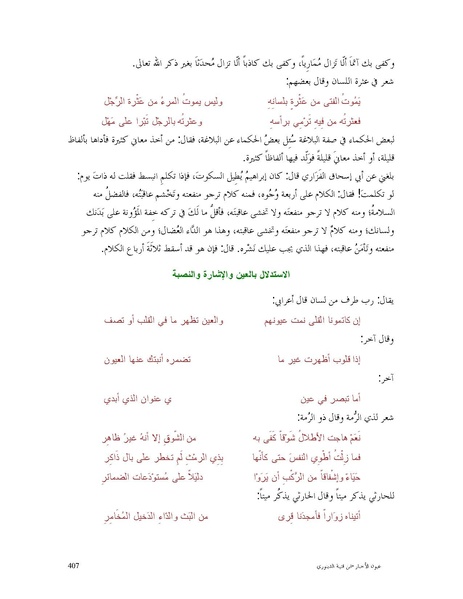 وكفى بك آثماً ألّا تزال مُمَارِياً، وكفى بك كاذباً ألّا تزال مُحدَثاً بغير ذكر الله تعالى.
شعر في عثرة اللسان وقال بعضهم:
يَمُوتُ الفتى من عَثْرةٍ بلسانِهِ وليس يموتُ المرءُ من عَثْرة الرَّجْلِ
فعثرتُه من فيهِ تَرْمي برأسه وعثرتُه بالرجْل تَبْرا على مَهْلِ
لبعض الحكماء في صفة البلاغة سُئِل بعضُ الحكماء عن البلاغة، فقال: من أخذ معانيَ كثيرة فأداها بألفاظ
قليلة، أو أخذ معانيَ قليلةً فولّد فيها ألفاظاً كثيرة.
بلغني عن أبي إسحاق الفَزَاري قال: كان إبراهيمُ يُطِيل السكوتَ، فإذا تكلم انبسط فقلت له ذاتَ يوم:
لو تكلمتَ! فقال: الكلام على أربعة وُجُوه، فمنه كلام ترجو منفعته وتَخْشى عاقبتُه، فالفضلُ منه
السلامةُ؛ ومنه كلام لا ترجو منفعتَه ولا تخشى عاقبتَه، فأقلُّ ما لَكَ في تركه خفة المَؤُونة على بَدَنك
ولسانك؛ ومنه كلامٌ لا ترجو منفعتَه وتخشى عاقبتَه، وهذا هو الدَّاء العُضَال؛ ومن الكلام كلام ترجو
منفعته وتَأْمَنُ عاقبته، فهذا الذي يجب عليك نَشْره. قال: فإن هو قد أسقط ثلاثةَ أرباع الكلام.
الاستدلال بالعين والإشارة والنصبة
يقال: رب طرف من لسان قال أعرابي:
إن كاتمونا القلى نمت عيونهم والعين تظهر ما في القلب أو تصف
وقال آخر:
إذا قلوب أظهرت غير ما تضمره أنبتك عنها العيون
آخر:
أما تبصر في عين ي عنوان الذي أبدي
شعر لذي الرُّمة وقال ذو الرُّمة:
نَعَمْ هاجت الأطْلالُ شَوْقاً كَفَى به من الشّوقِ إلا أنهُ غيرُ ظاهر
فما زِلْتُ أطْوِي النفسَ حتى كأنّها بِذي الرِمْثِ لَم تخطر على بال ذَاكِرِ
حَيَاءً وإشْفاقاً من الرَّكْبِ أن يَرَوْا دلِيْلاً على مُستوْدَعات الضمائر
للحارثي يذكر ميتاً وقال الحارثي يذكُر ميتاً:
أتيناه زوَاراً فأمجدَنا قرى من البَث والدّاءِ الدَخيل المُخَامر
407 عيون الأخبار-ابن قتيبة الدينوري